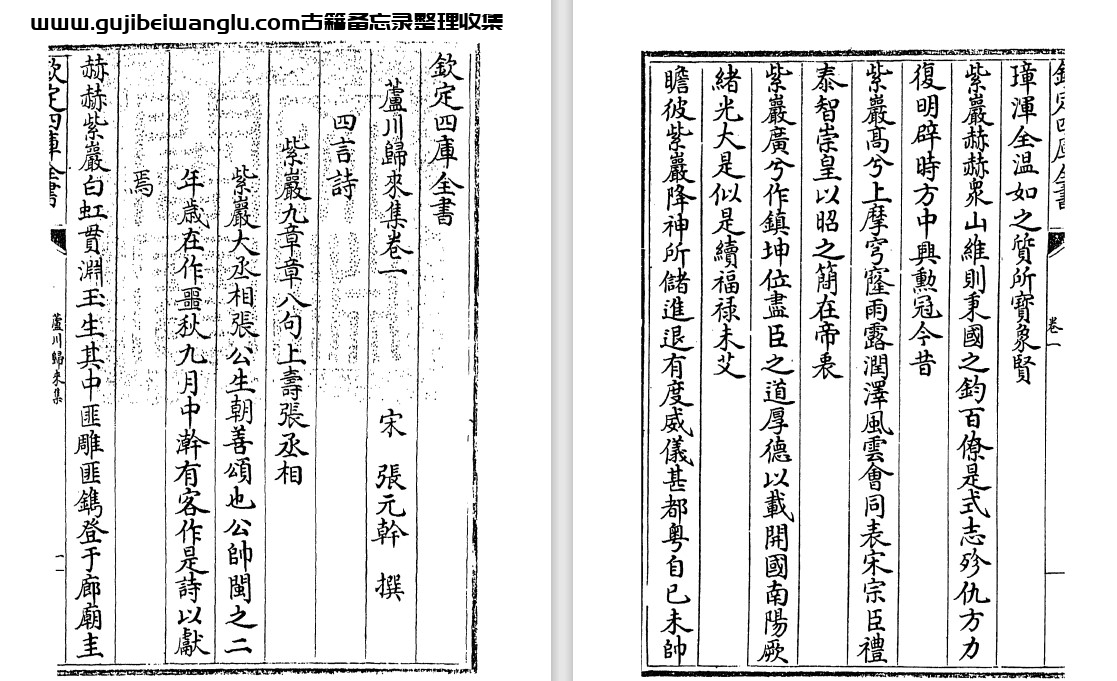 www.gujibeiwanglu.com古籍备忘录整理收集
欽定四庫全書
蘆川歸來集卷一
宋 張元幹 撰
四言詩
紫巖九章章八句上壽張丞相
紫巖大丞相張公生朝善頌也公帥閩之二
年歲在作噩秋九月中澣有客作是詩以獻
焉
赫赫紫巖白虹貫淵玉生其中匪雕匪鐫登于廊廟圭
欽定四庫全書
蘆川歸來集
一
欽定四庫全書
卷一
璋渾全溫如之質所寶象賢
紫巖赫赫衆山維則秉國之鈞百僚是式志殄仇方力
復明辟時方中興勲冠今昔
紫巖髙兮上摩穹窿雨露潤澤風雲會同表宋宗臣禮
泰智崇皇以昭之簡在帝衷
紫巖廣兮作鎮坤位盡臣之道厚德以載開國南陽厥
緒光大是似是續福禄未艾
瞻彼紫巖降神所儲進退有度威儀甚都粤自已未帥